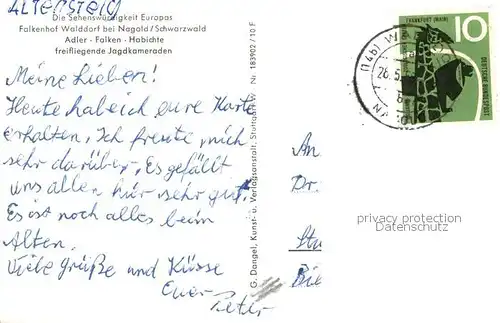 Altensteig
Die Sehenswürdigkeit Europas
Falkenhof Walddorf bei Nagold/Schwarzwald
Adler - Falken - Habichte
freifliegende Jagdkameraden
Meine Lieben!
Heute habe ich eure Karte
erhalten, Ich freute mich
sehr darüber, Es gefällt
uns allen hier sehr gut.
Es ist noch alles beim
Alten.
Viele grüße und Küsse
Euer
Peter
G. Dangel, Kunst- u. Verlagsanstalt, Stuttgart-W Nr. 183902 / 10 F
(14b)
26.5.
FRANKFURT (MAIN)
10
DEUTSCHE BUNDESPOST
An
Dr.
Stu
Bie
privacy protection
Datenschutz